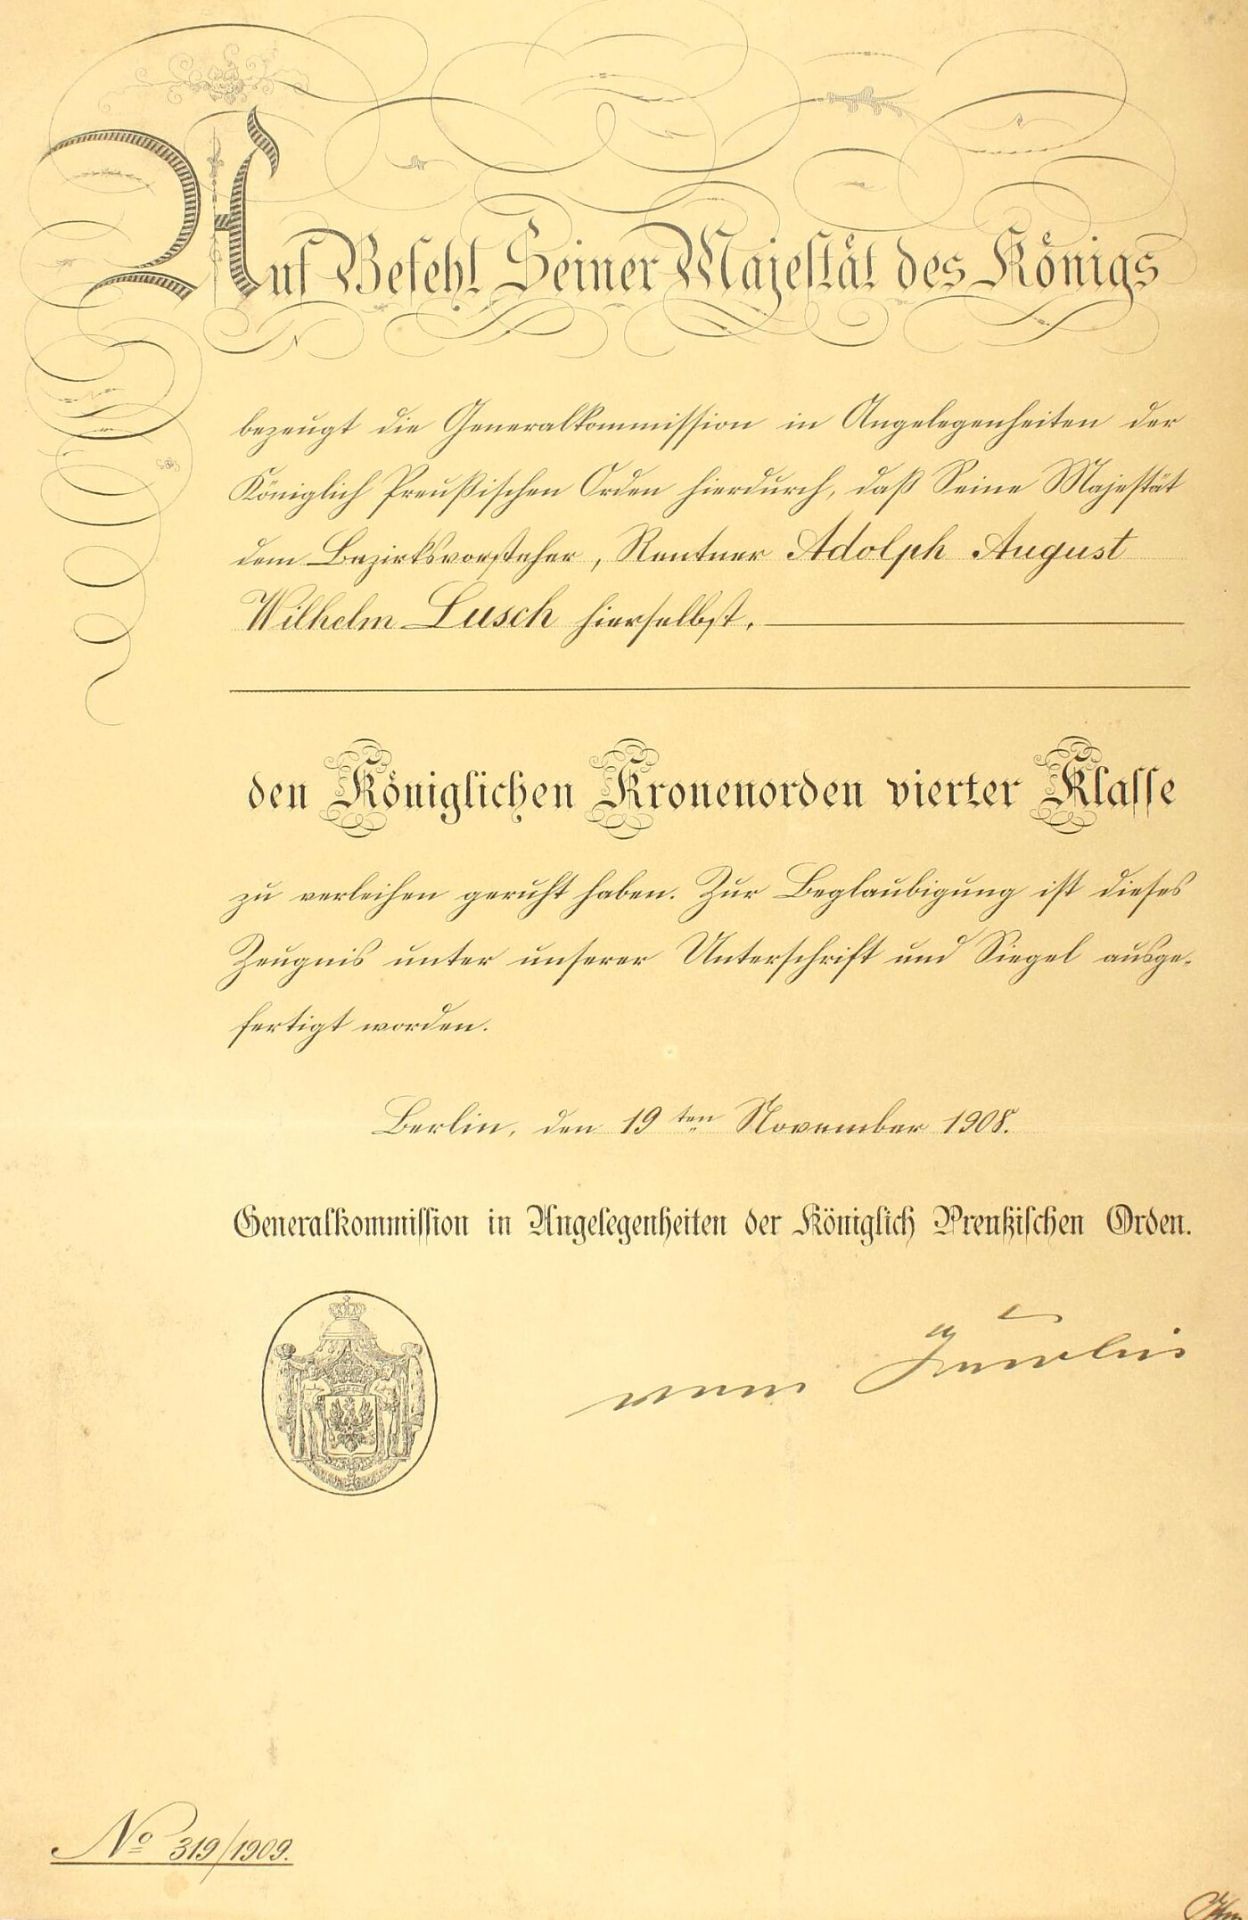 Auf Befehl Seiner Majestät des Königs
bezeugt die Generalkommission in Angelegenheiten der
Königlich Preußischen Orden hierdurch, daß Seine Majestät
dem Bezirksvorsteher, Rentner Adolph August
Wilhelm Lusch hierselbst,
den Königlichen Kronenorden vierter Klasse
zu verleihen geruht haben. Zur Beglaubigung ist dieses
Zeugnis unter unserer Unterschrift und Siegel ausge-
fertigt worden.
Berlin, den 19ten November 1908.
Generalkommission in Angelegenheiten der Königlich Preußischen Orden.
No 319/1909.